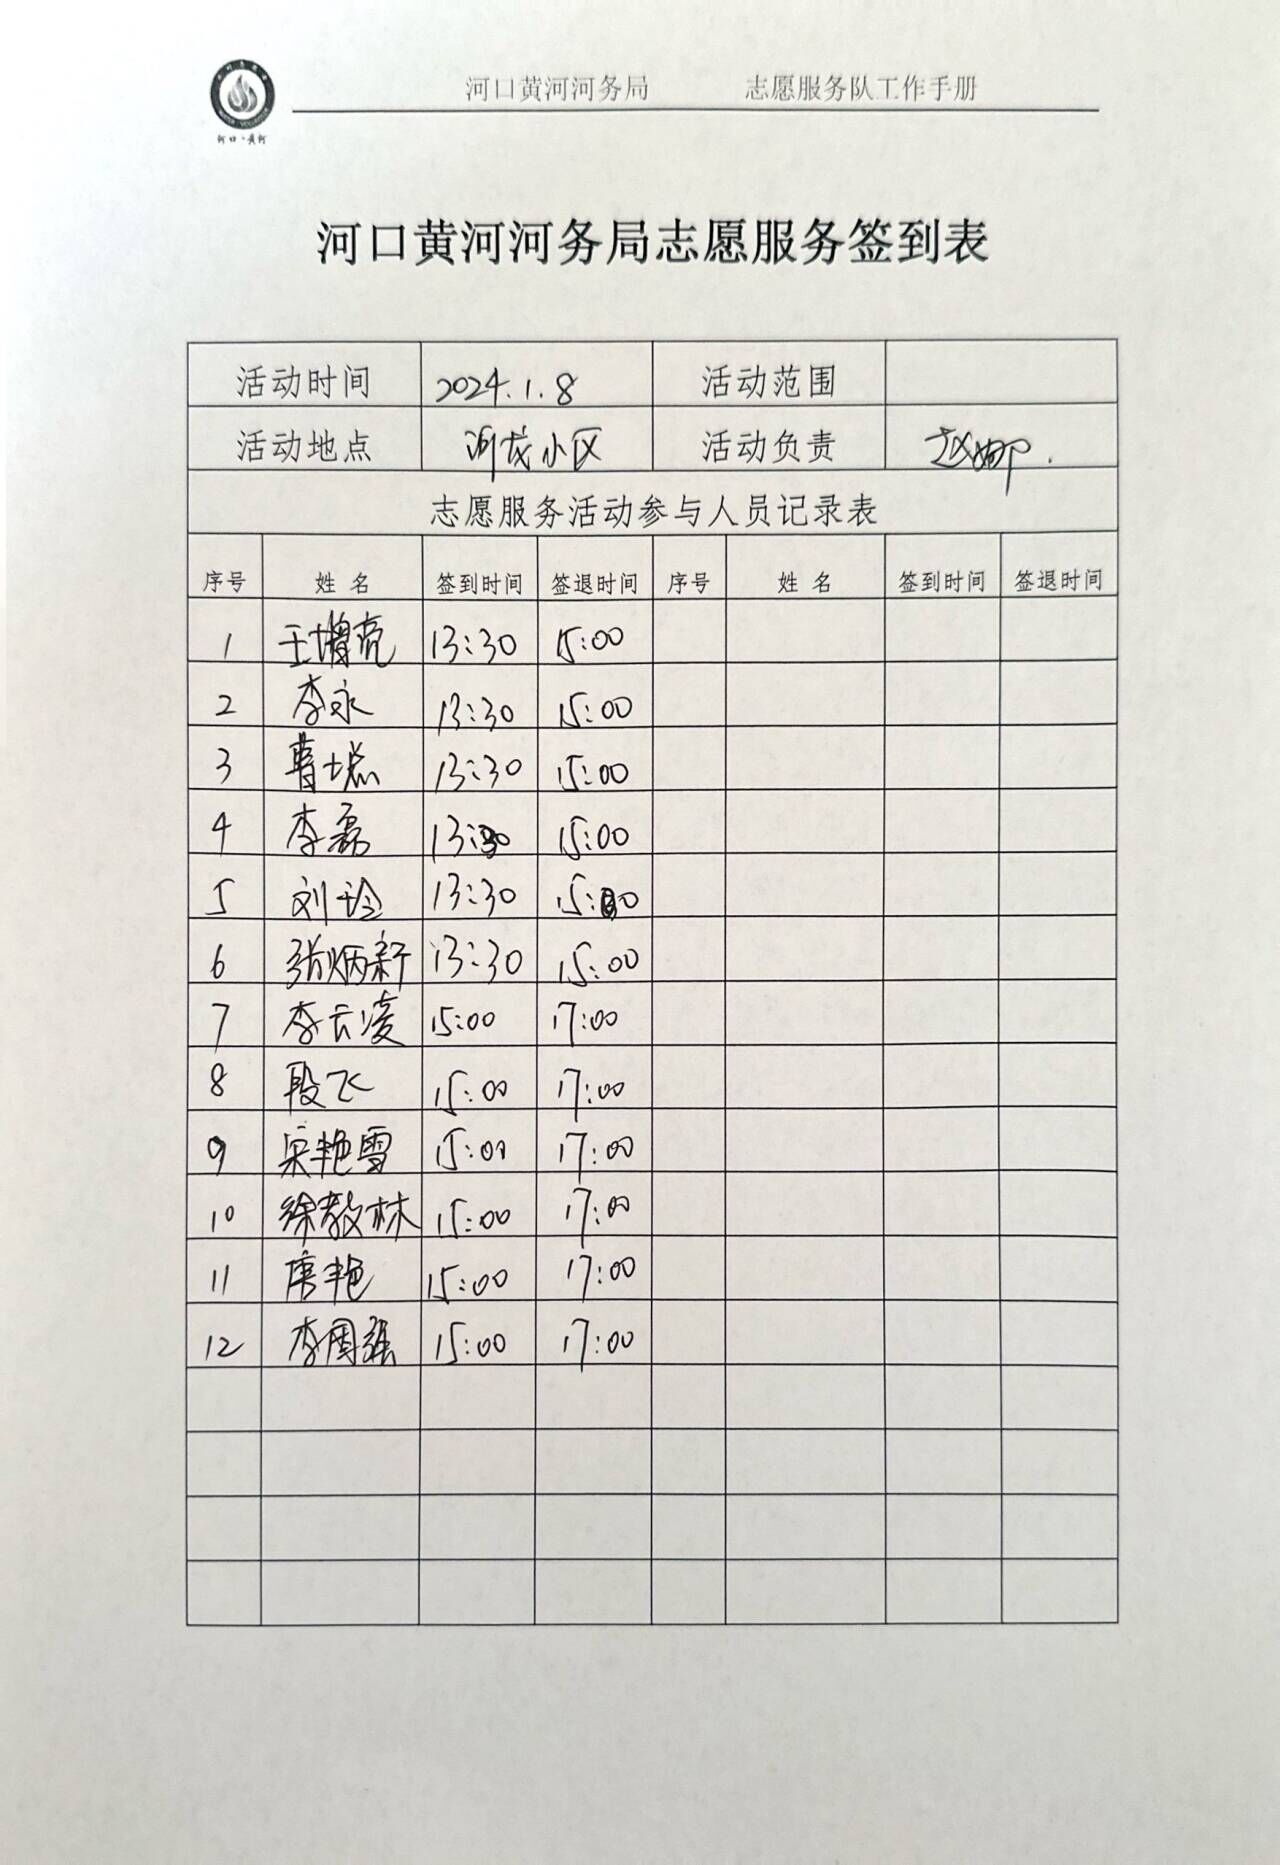 河口·黄河
河口黄河河务局 志愿服务队工作手册
河口黄河河务局志愿服务签到表
活动时间 2024.1.8 活动范围
活动地点 浉龙小区 活动负责 赵娜.
志愿服务活动参与人员记录表
序号 姓名 签到时间 签退时间 序号 姓名 签到时间 签退时间
1 王增亮 13:30 15:00
2 李永 13:30 15:00
3 13:30 15:00
4 李磊 13:30 15:00
5 刘玲 13:30 15:00
6 张炳新 13:30 15:00
7 李云凌 15:00 17:00
8 段飞 15:00 17:00
9 宋艳雪 15:00 17:00
10 徐教林 15:00 17:00
11 唐艳 15:00 17:00
12 李周强 15:00 17:00